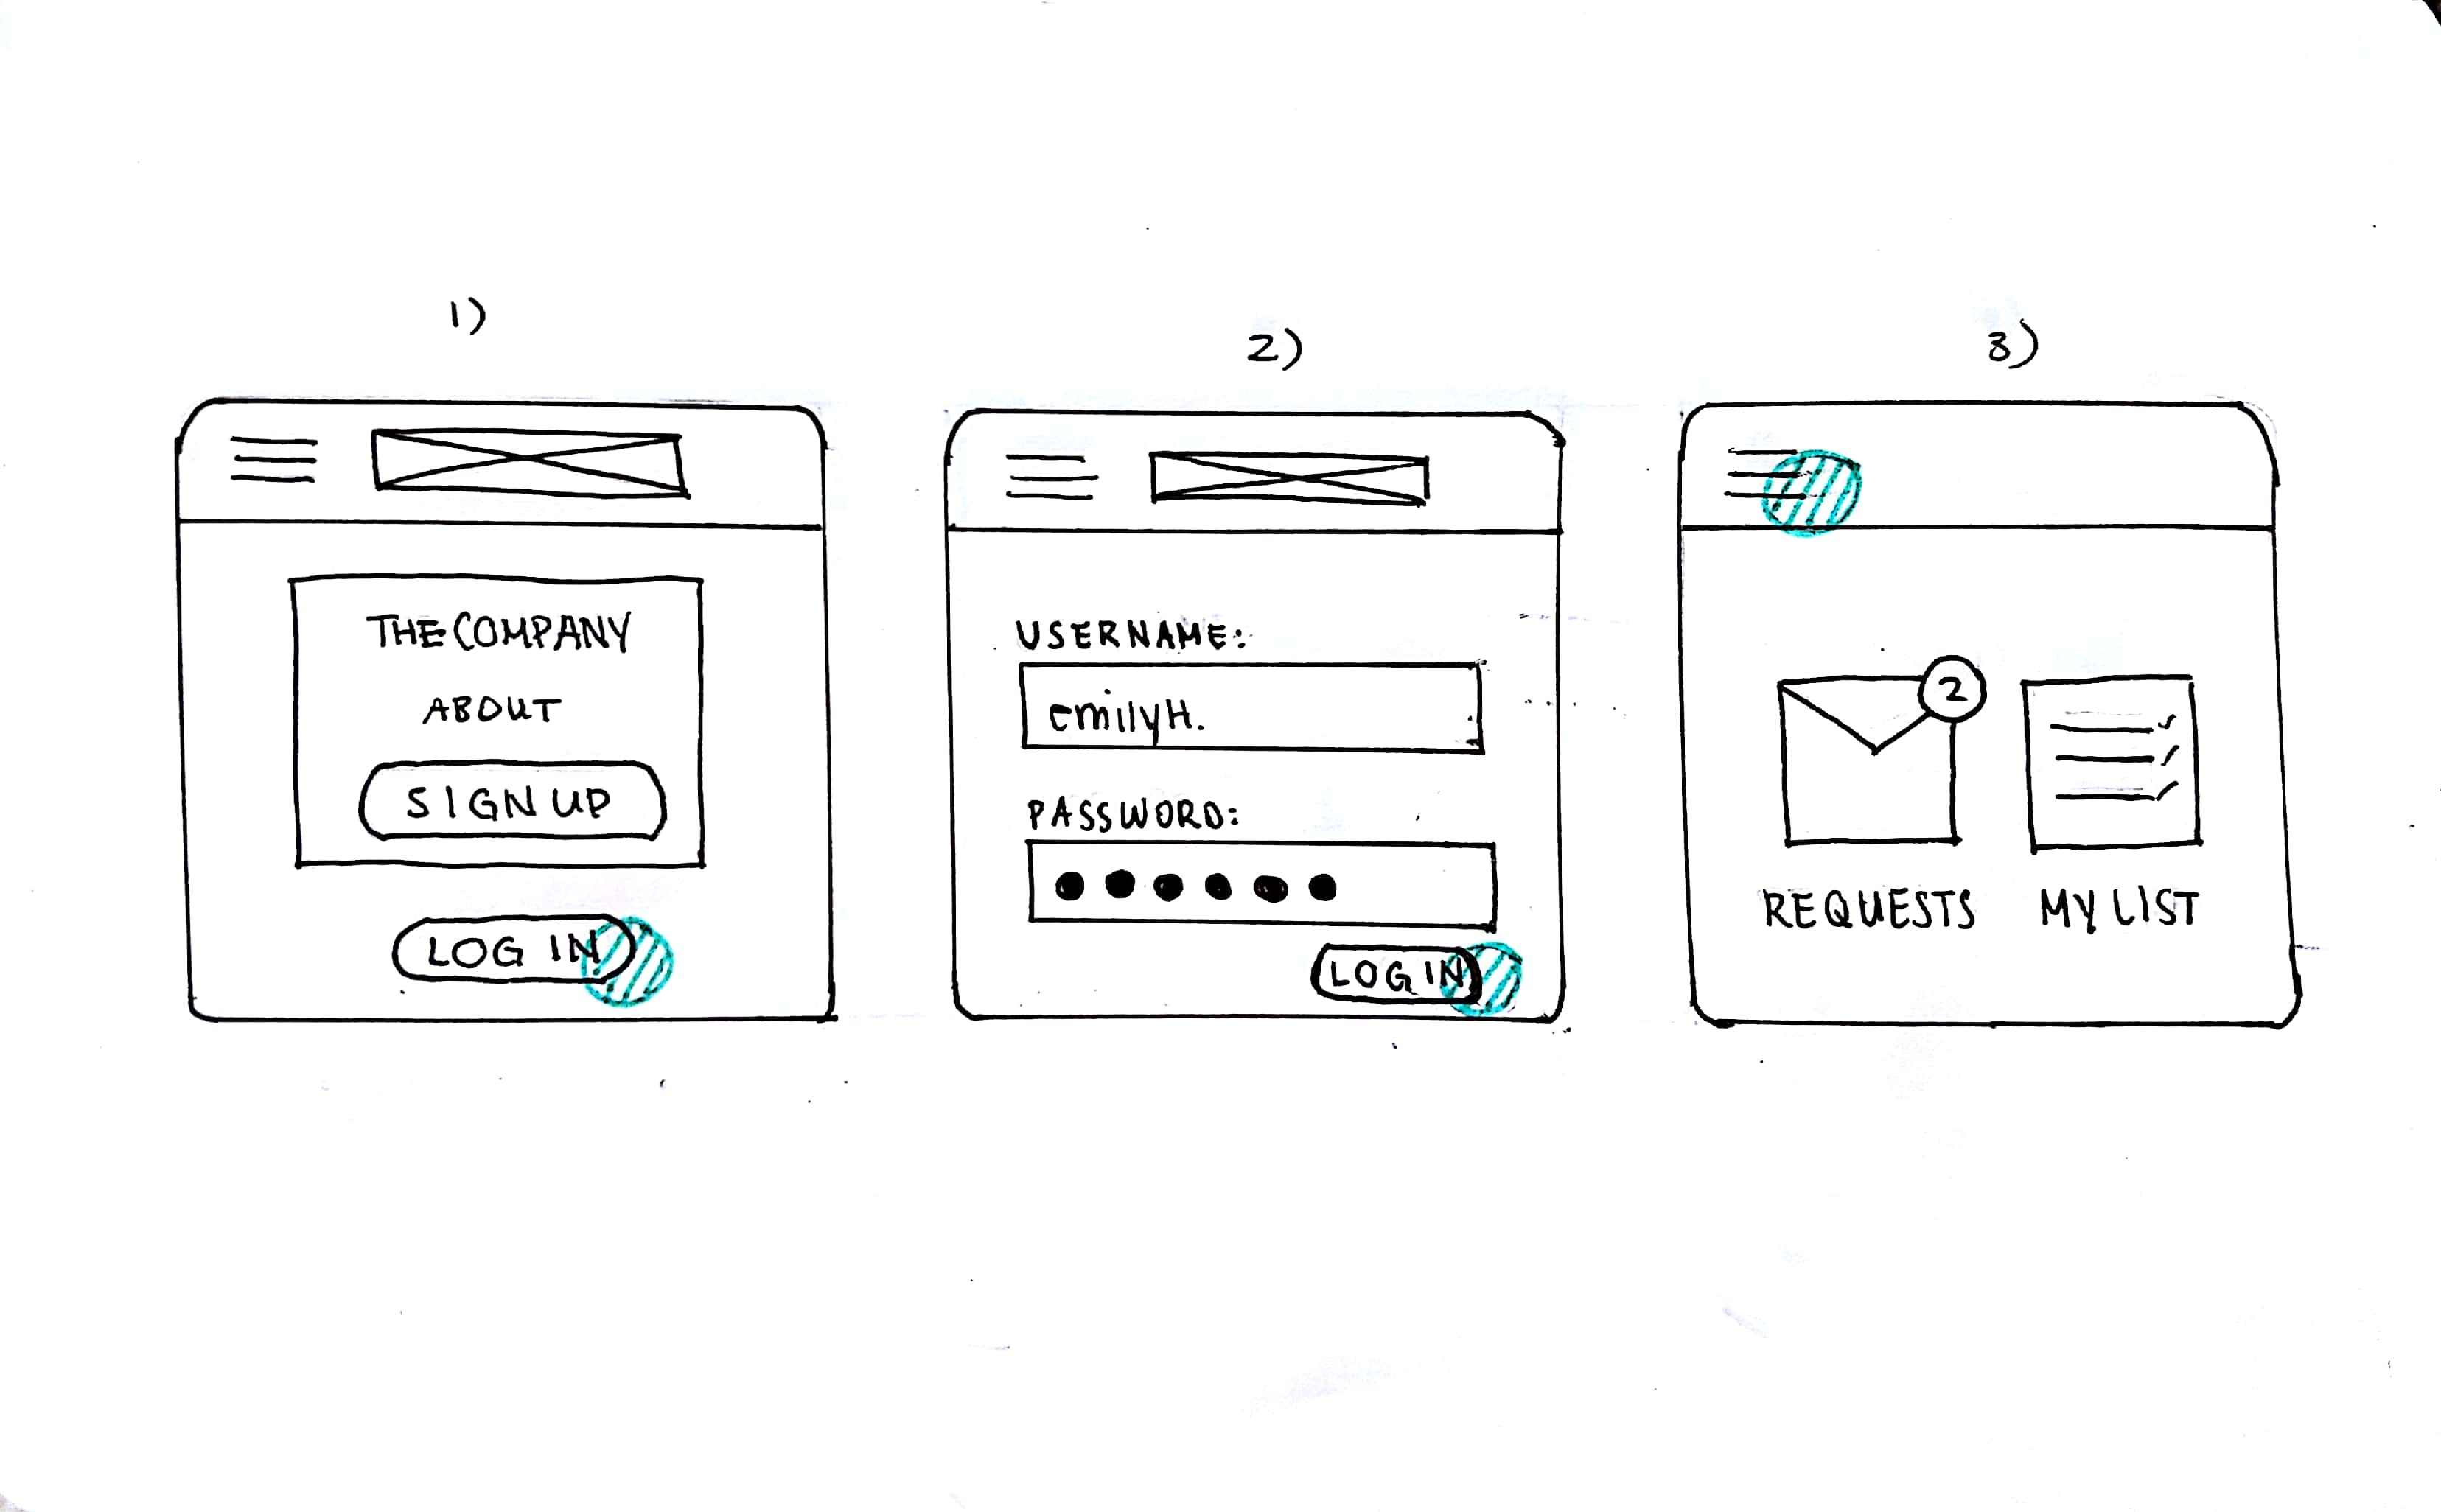 1)
THE COMPANY
ABOUT
SIGN UP
LOG IN
2)
USERNAME:
emilyH.
PASSWORD:
LOG IN
3)
2
REQUESTS MY LIST